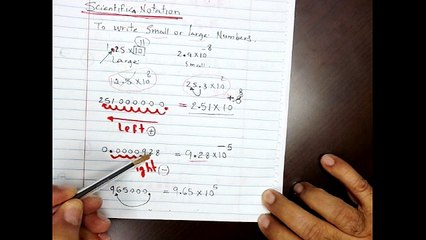 Scientific Notation
To Write Small or large Numbers.
1.25 x 10^11 2.9 x 10^-8
large small
25.3 x 10^2
251000000. = 2.51 x 10^+8
Left (+)
0.0000928 = 9.28 x 10^-5
ight (-)
965000. = 9.65 x 10^5